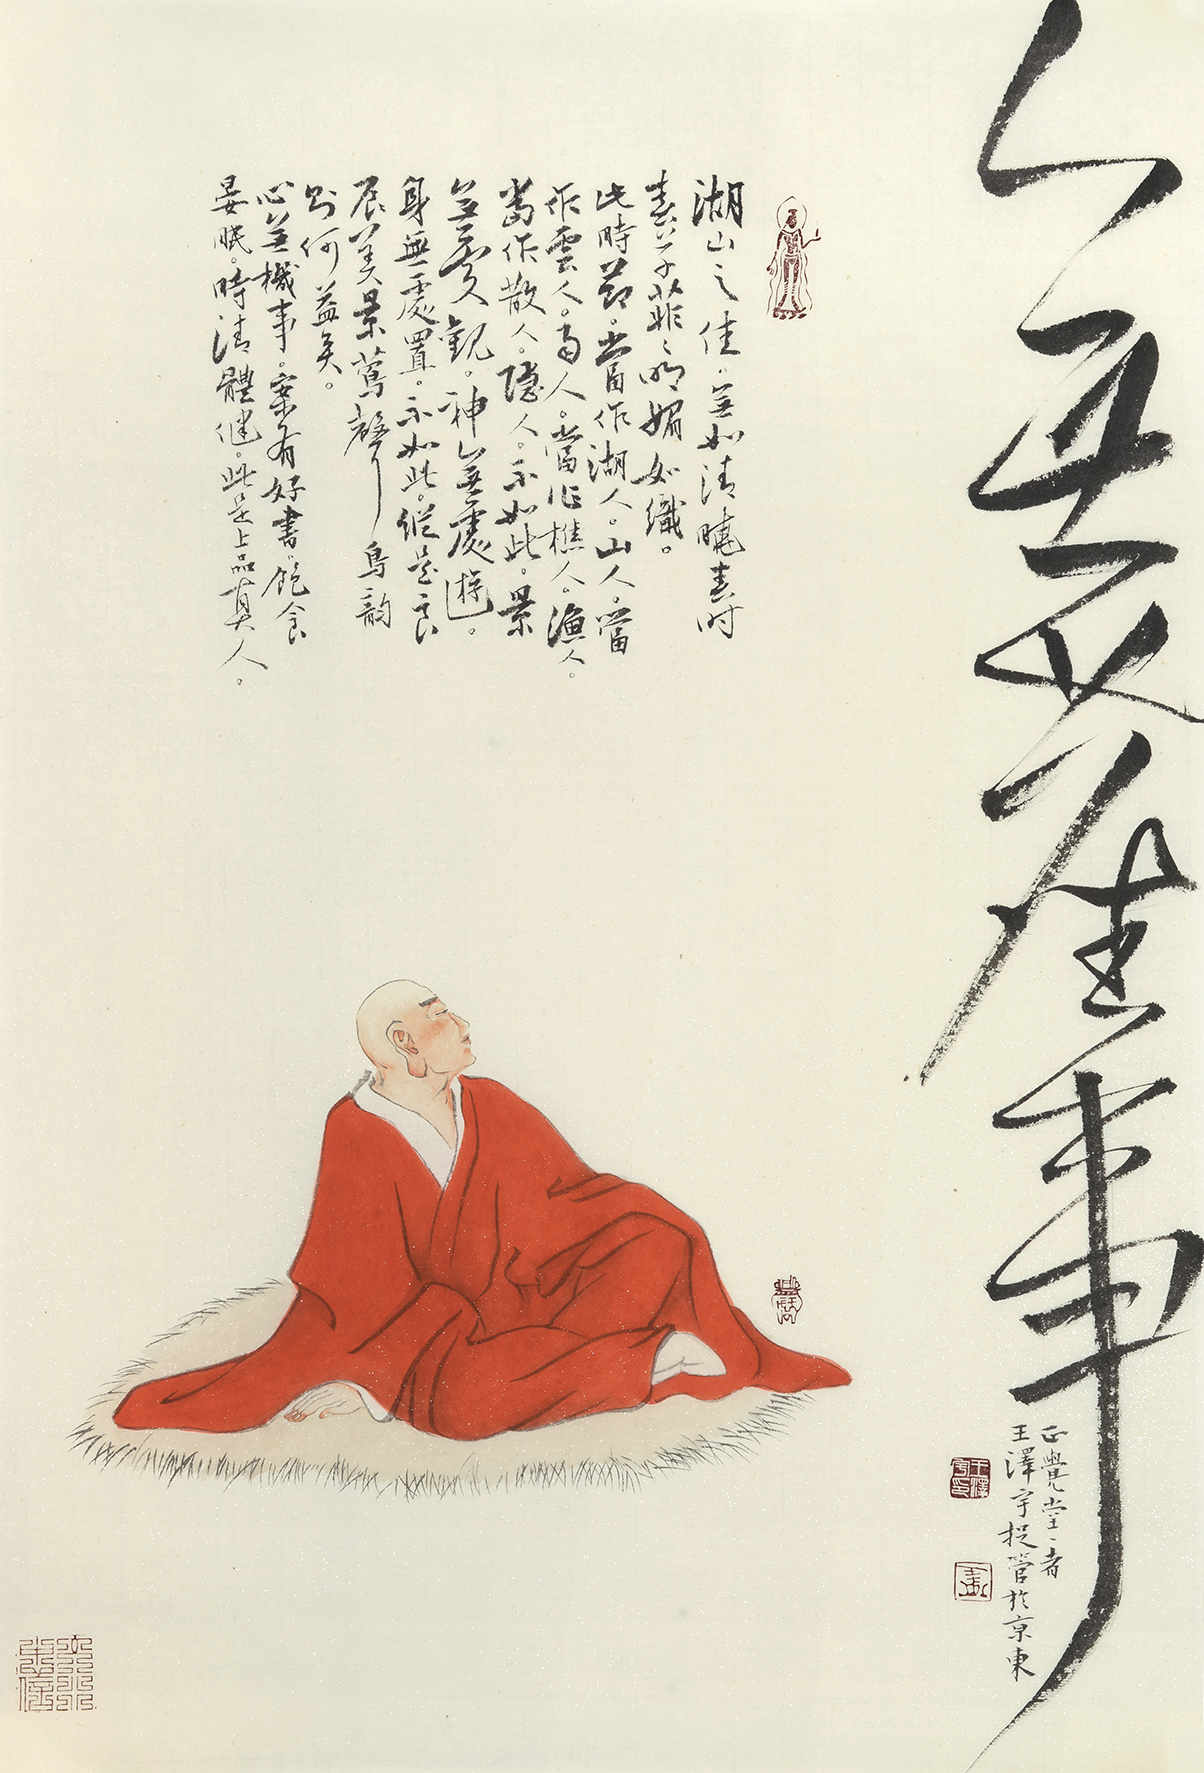 無事
湖山之佳。無如清曉春時
春草菲々明媚如織。
此時節。當作湖人。山人。當
作雲人。高人。當作樵人。漁人。
當作散人。隱人。不如此。景
無處觀。神無處遊。
身無處置。不如此。縱是良
辰美景鶯聲鳥韵
則何益矣。
心無機事。案有好書。飽食
晏眠。時清體健。此是上品真人。
正覺堂々者
王澤宇捉管於京東
王澤宇印